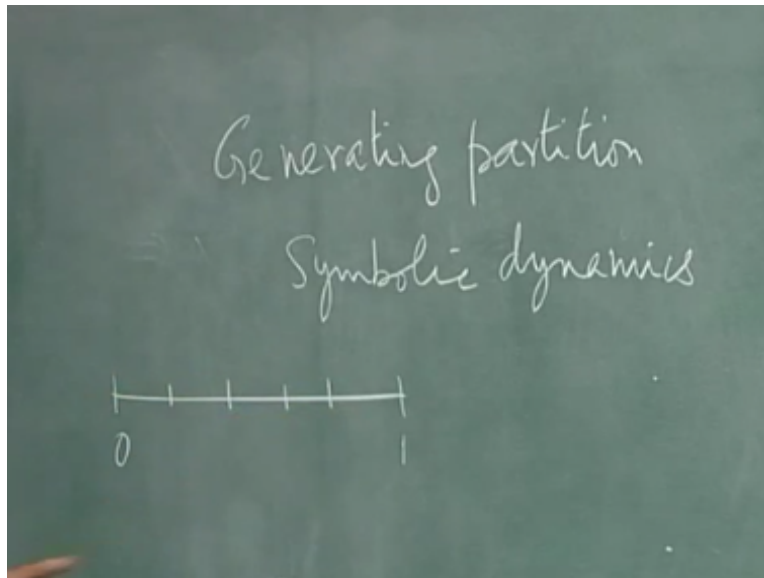 Generating partition
Symbolic dynamics
0 1